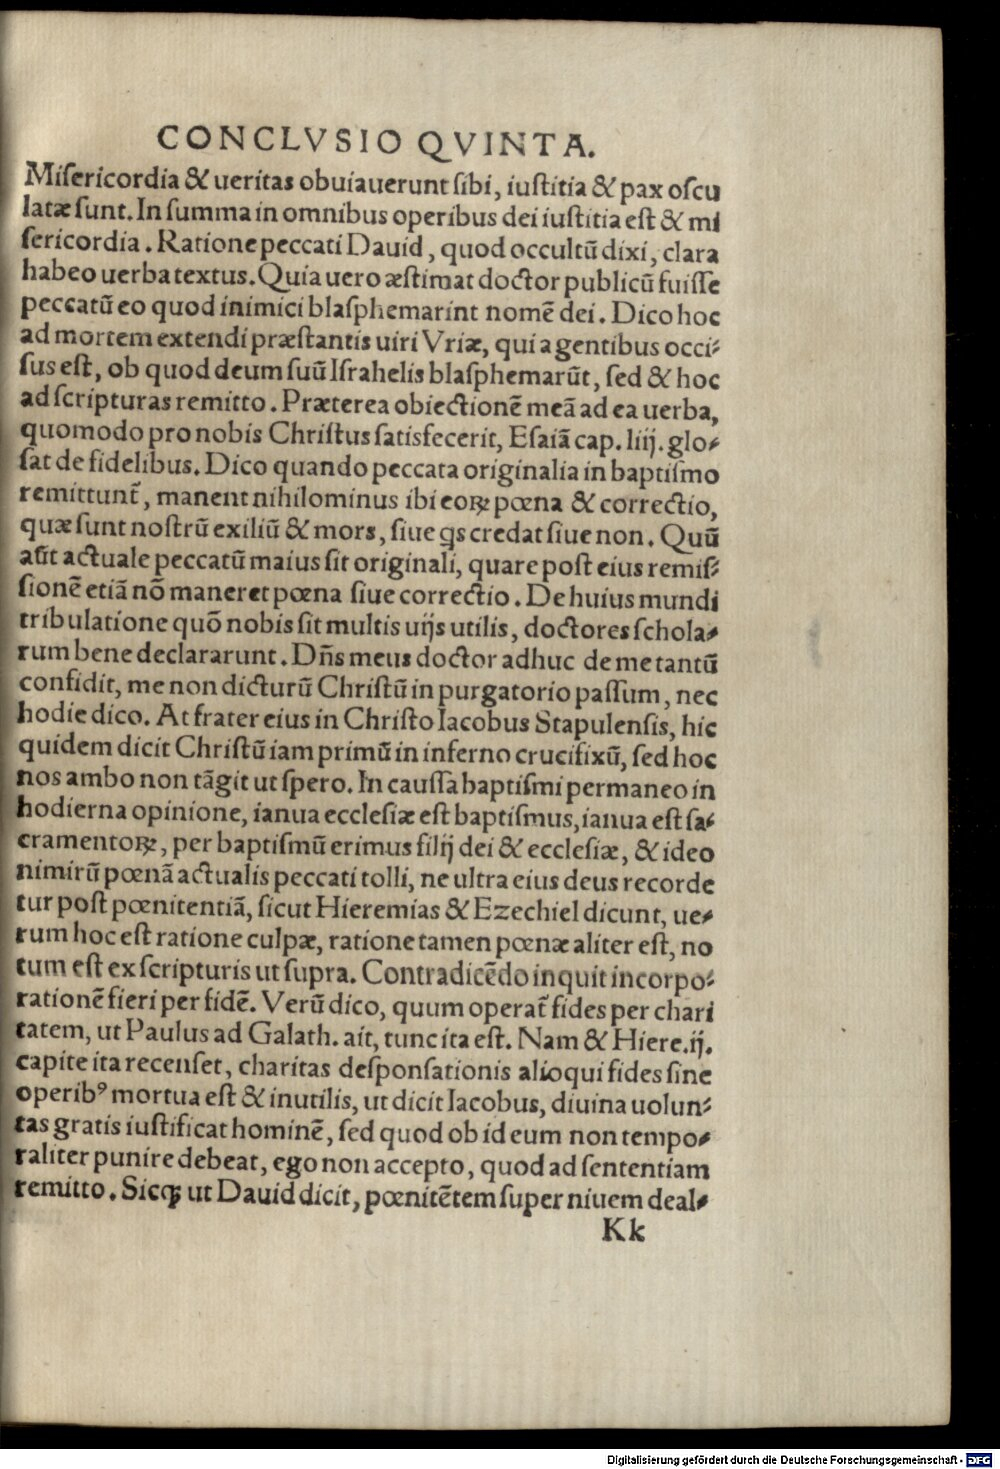 CONCLVSIO QVINTA.
Miſericordia & ueritas obuiauerunt ſibi, iuſtitia & pax oſcu
latæ ſunt. In ſumma in omnibus operibus dei iuſtitia eſt & mi
ſericordia. Ratione peccati Dauid, quod occultũ dixi, clara
habeo uerba textus. Quia uero æſtimat doctor publicũ fuiſſe
peccatũ eo quod inimici blaſphemarint nomẽ dei. Dico hoc
ad mortem extendi præſtantis uiri Vriæ, qui a gentibus occi⸗
ſus eſt, ob quod deum ſuũ Iſrahelis blaſphemarũt, ſed & hoc
ad ſcripturas remitto. Præterea obiectionẽ meã ad ea uerba,
quomodo pro nobis Chriſtus ſatisfecerit, Eſaiã cap. liij. glo⸗
ſat de fidelibus. Dico quando peccata originalia in baptiſmo
remittunt̃, manent nihilominus ibi eoꝝ pœna & correctio,
quæ ſunt noſtrũ exiliũ & mors, ſiue qs credat ſiue non. Quũ
aũt actuale peccatũ maius ſit originali, quare poſt eius remiſ⸗
ſionẽ etiã nõ maneret pœna ſiue correctio. De huius mundi
tribulatione quõ nobis ſit multis uijs utilis, doctores ſchola⸗
rum bene declararunt. Dñs meus doctor adhuc de me tantũ
confidit, me non dicturũ Chriſtũ in purgatorio paſſum, nec
hodie dico. At frater eius in Chriſto Iacobus Stapulenſis, hic
quidem dicit Chriſtũ iam primũ in inferno crucifixũ, ſed hoc
nos ambo non tãgit ut ſpero. In cauſſa baptiſmi permaneo in
hodierna opinione, ianua eccleſiæ eſt baptiſmus, ianua eſt ſa⸗
cramentoꝝ, per baptiſmũ erimus filij dei & eccleſiæ, & ideo
nimirũ pœnã actualis peccati tolli, ne ultra eius deus recorde
tur poſt pœnitentiã, ſicut Hieremias & Ezechiel dicunt, ue⸗
rum hoc eſt ratione culpæ, ratione tamen pœnæ aliter eſt, no
tum eſt ex ſcripturis ut ſupra. Contradicẽdo inquit incorpo⸗
rationẽ fieri per fidẽ. Verũ dico, quum operat̃ fides per chari
tatem, ut Paulus ad Galath. ait, tunc ita eſt. Nam & Hiere. ij.
capite ita recenſet, charitas deſponſationis alioqui fides ſine
operibꝰ mortua eſt & inutilis, ut dicit Iacobus, diuina uolun⸗
tas gratis iuſtificat hominẽ, ſed quod ob id eum non tempo⸗
raliter punire debeat, ego non accepto, quod ad ſententiam
remitto. Sicꝗ ut Dauid dicit, pœnitẽtem ſuper niuem deal⸗
Kk
Digitalisierung gefördert durch die Deutsche Forschungsgemeinschaft - DFG